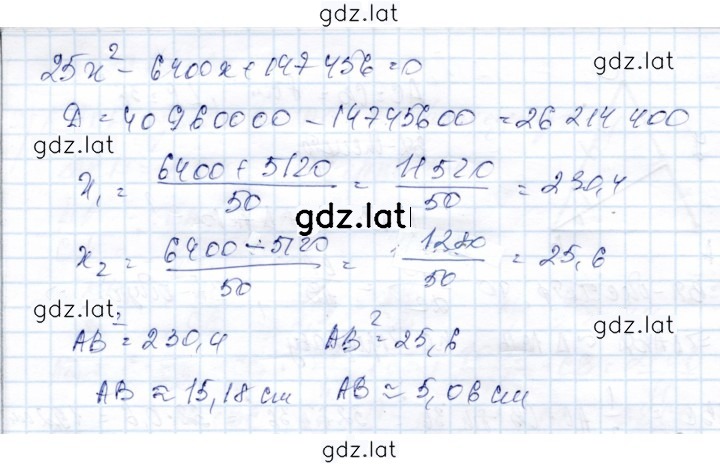 gdz.lat
25x² - 6400x + 147456 = 0
gdz.lat
D = 40960000 - 14745600 = 26214400
gdz.lat
x₁ = (6400 + 5120)/50 = 11520/50 = 230,4
gdz.lat
x₂ = (6400 - 5120)/50 = 1280/50 = 25,6
gdz.lat
gdz.lat
AB² = 230,4 AB² = 25,6
AB ≈ 15,18 см AB ≈ 5,06 см
gdz.lat